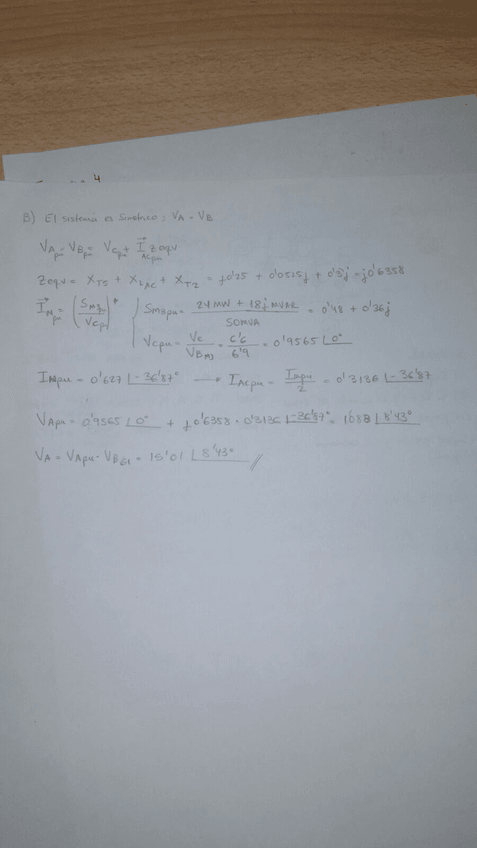 4
B) El sistema es simetrico; VA = VB
VApu = VBpu = VCpu + IACpu Zequ
Zequ = XT5 + XLAC + XT2 = j0'25 + 0'0525j + 0'3j = j0'6358
IMpu = (SM3pu / VCpu)* { SM3pu = 24 MW + 18j MVAR / 50MVA = 0'48 + 0'36j
VCpu = VC / VBM3 = 6'6 / 6'9 = 0'9565 ∠0°
IMpu = 0'627 ∠-36'87° → IACpu = IMpu / 2 = 0'3136 ∠-36'87
VApu = 0'9565 ∠0° + j0'6358 · 0'3136 ∠-36'87° = 1'088 ∠8'43°
VA = VApu · VBG1 = 15'01 ∠8'43° //